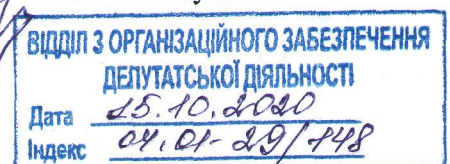 ВІДДІЛ З ОРГАНІЗАЦІЙНОГО ЗАБЕЗПЕЧЕННЯ
ДЕПУТАТСЬКОЇ ДІЯЛЬНОСТІ
Дата 15.10.2020
Індекс 04.01-29/148